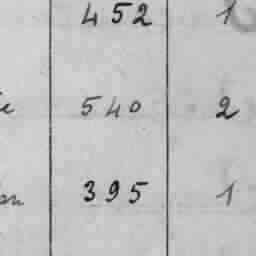 452 1
540 2
395 1